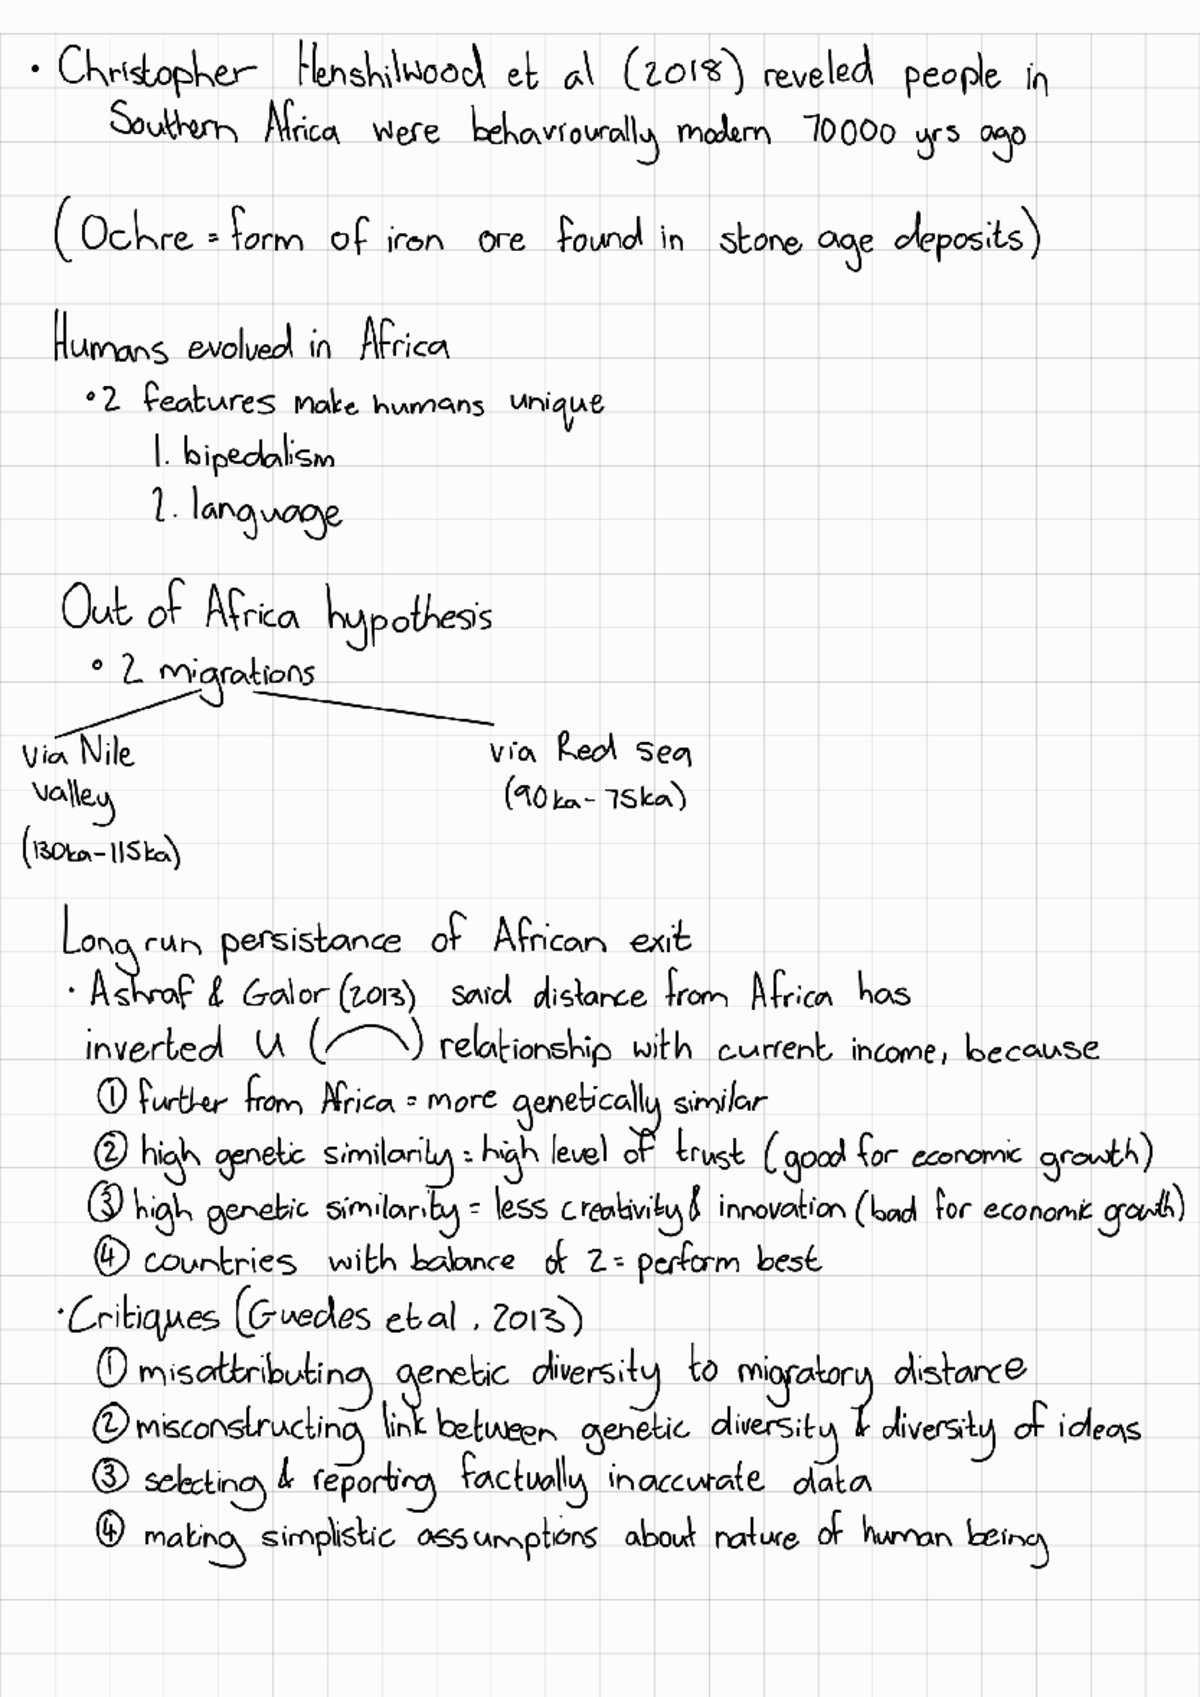 • Christopher Henshilwood et al (2018) reveled people in
Southern Africa were behaviourally modern 70000 yrs ago
(Ochre = form of iron ore found in stone age deposits)
Humans evolved in Africa
• 2 features make humans unique
1. bipedalism
2. language
Out of Africa hypothesis
• 2 migrations
via Nile
valley
(130ka-115ka)
via Red sea
(90ka-75ka)
Long run persistance of African exit
• Ashraf & Galor (2013) said distance from Africa has
inverted U ( ) relationship with current income, because
① further from Africa = more genetically similar
② high genetic similarity = high level of trust (good for economic growth)
③ high genetic similarity = less creativity & innovation (bad for economic growth)
④ countries with balance of 2 = perform best
• Critiques (Guedes et al, 2013)
① misattributing genetic diversity to migratory distance
② misconstructing link between genetic diversity & diversity of ideas
③ selecting & reporting factually inaccurate data
④ making simplistic assumptions about nature of human being